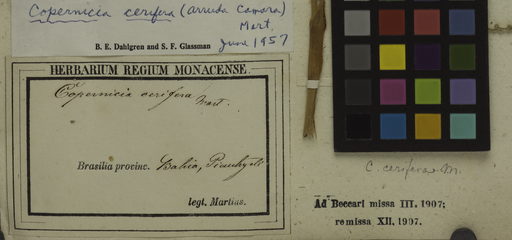 Copernicia cerifera (Arruda Camara)
Mart.
B. E. Dahlgren and S. F. Glassman
June 1957
HERBARIUM REGIUM MONACENSE.
Copernicia cerifera Mart.
Brasilia provinc. Bahia, Piauhy etc
legt. Martius.
C. cerifera M.
Ad Beccari missa III, 1907;
remissa XII, 1907.